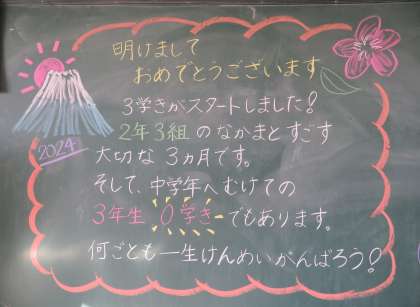 明けまして
おめでとうございます
3学きがスタートしました!
2年3組のなかまとすごす
2024
大切な3ヵ月です。
そして、中学年へむけての
3年生 0学き でもあります。
何ごとも一生けんめいがんばろう!